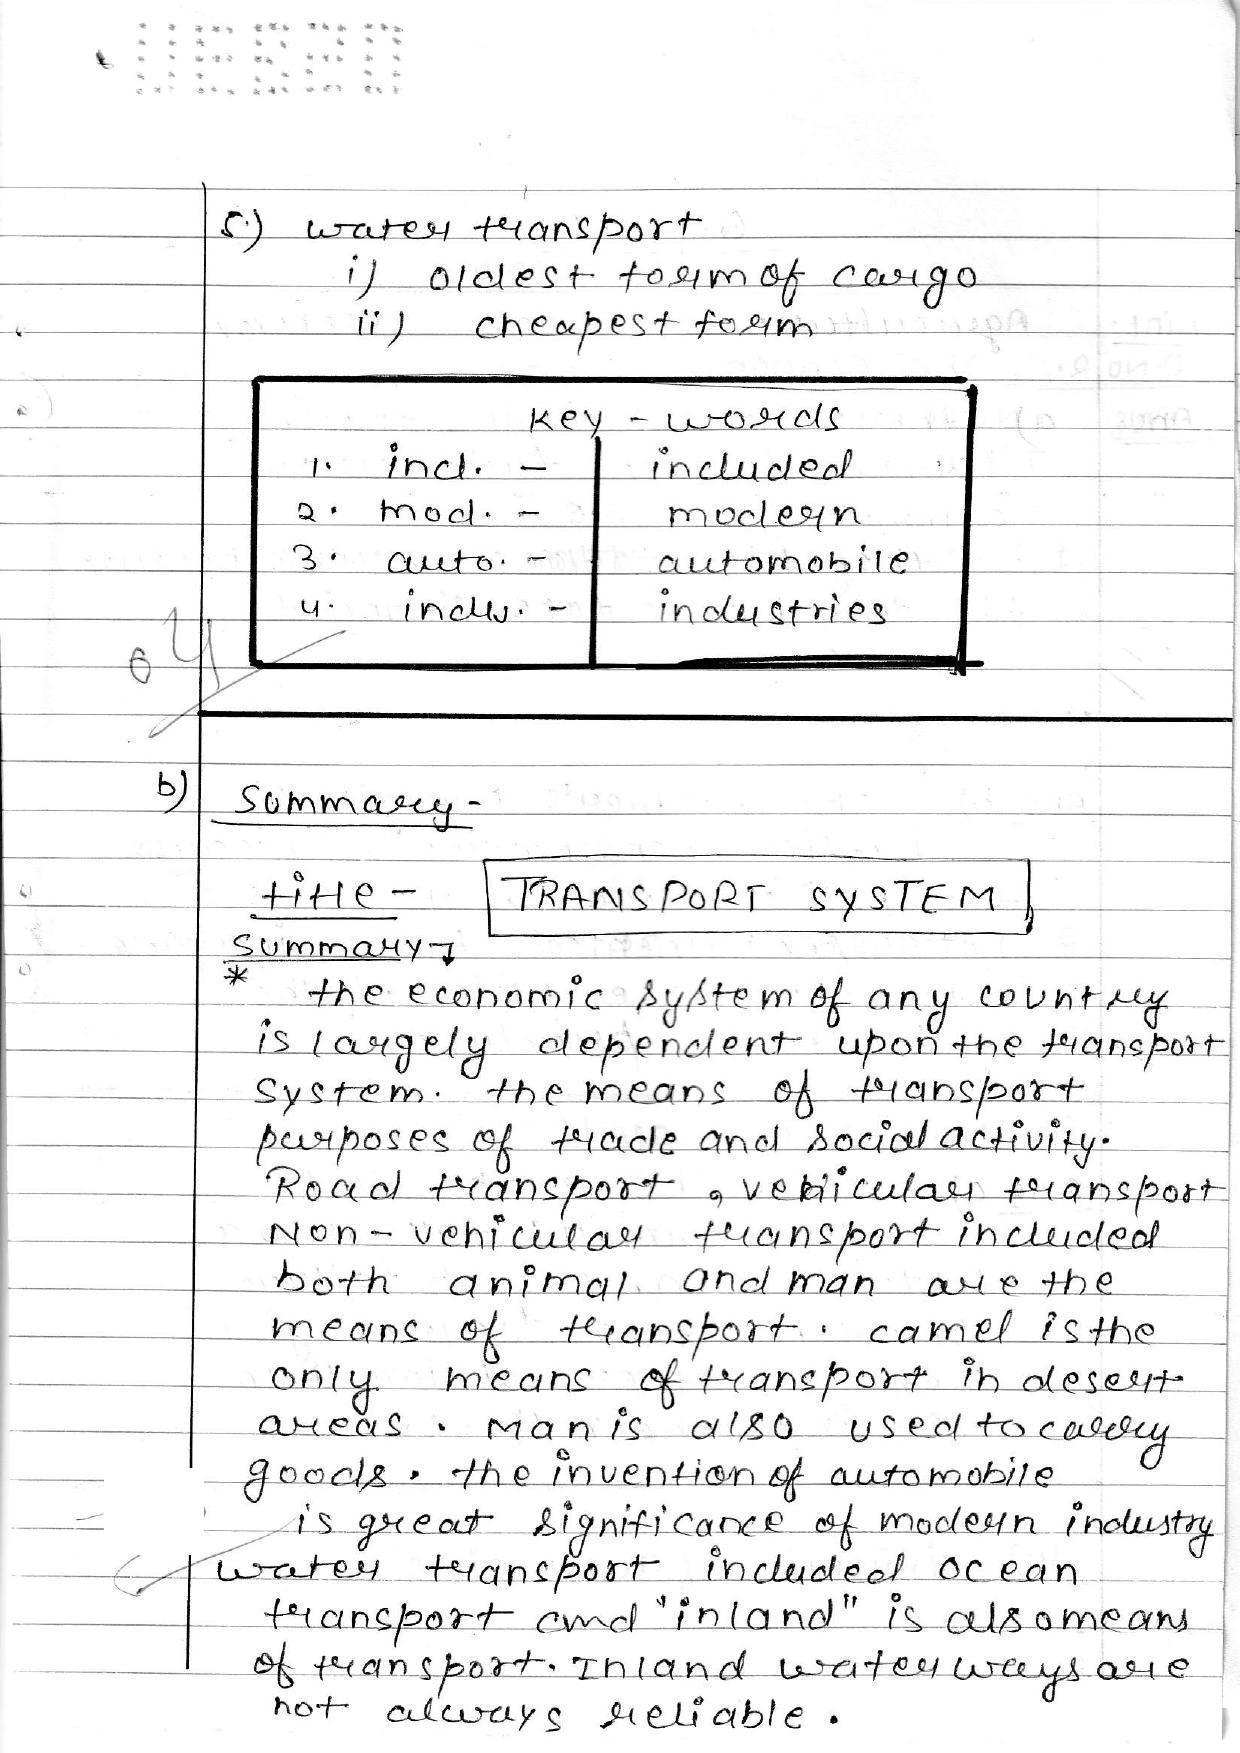 5.) water transport
i) oldest form of cargo
ii) cheapest form
key - words
1. incl. - included
2. mod. - modern
3. auto. - automobile
4. indus. - industries
b) Summary -
title - TRANSPORT SYSTEM
Summary
* the economic system of any country
is largely dependent upon the transport
system. the means of transport
purposes of trade and social activity.
Road transport, vehicular transport
Non-vehicular transport included
both animal and man are the
means of transport. camel is the
only means of transport in desert
areas. Man is also used to carry
goods. the invention of automobile
is great significance of modern industry
water transport included ocean
transport and "inland" is also means
of transport. Inland water ways are
not always reliable.